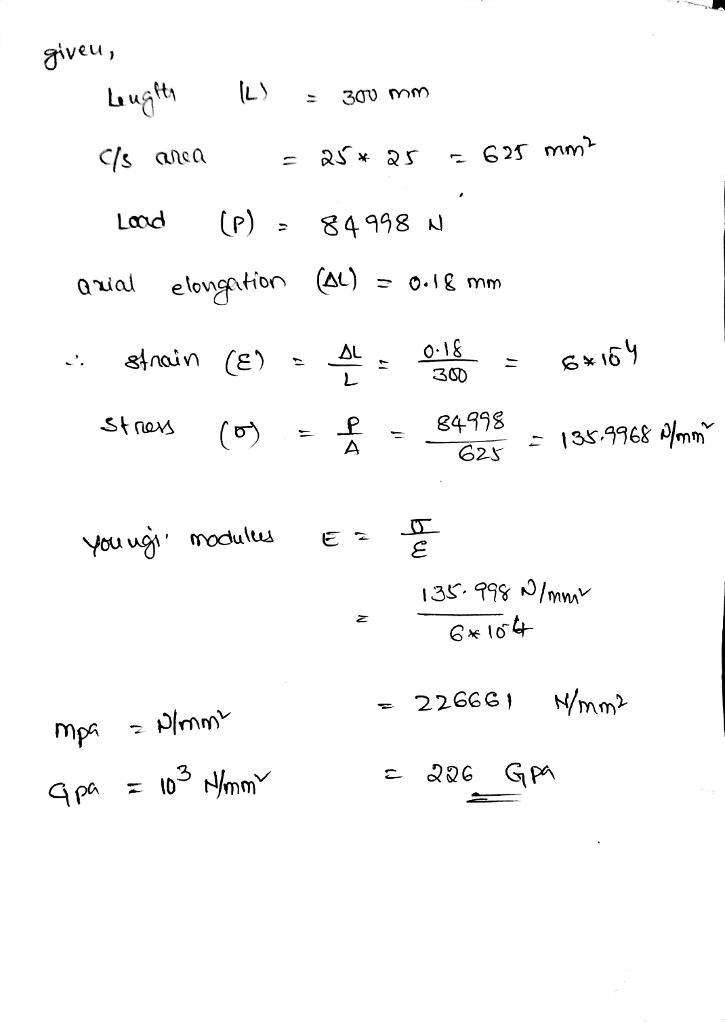 given,
Length (L) = 300 mm
C/s area = 25 * 25 = 625 mm²
Load (P) = 84998 N
axial elongation (ΔL) = 0.18 mm
∴ strain (ε) = ΔL/L = 0.18/300 = 6*10⁻⁴
Stress (σ) = P/A = 84998/625 = 135.9968 N/mm²
Youngs' modulus E = σ/ε
= 135.998 N/mm² / 6*10⁻⁴
= 226661 N/mm²
Mpa = N/mm²
Gpa = 10³ N/mm² = 226 Gpa